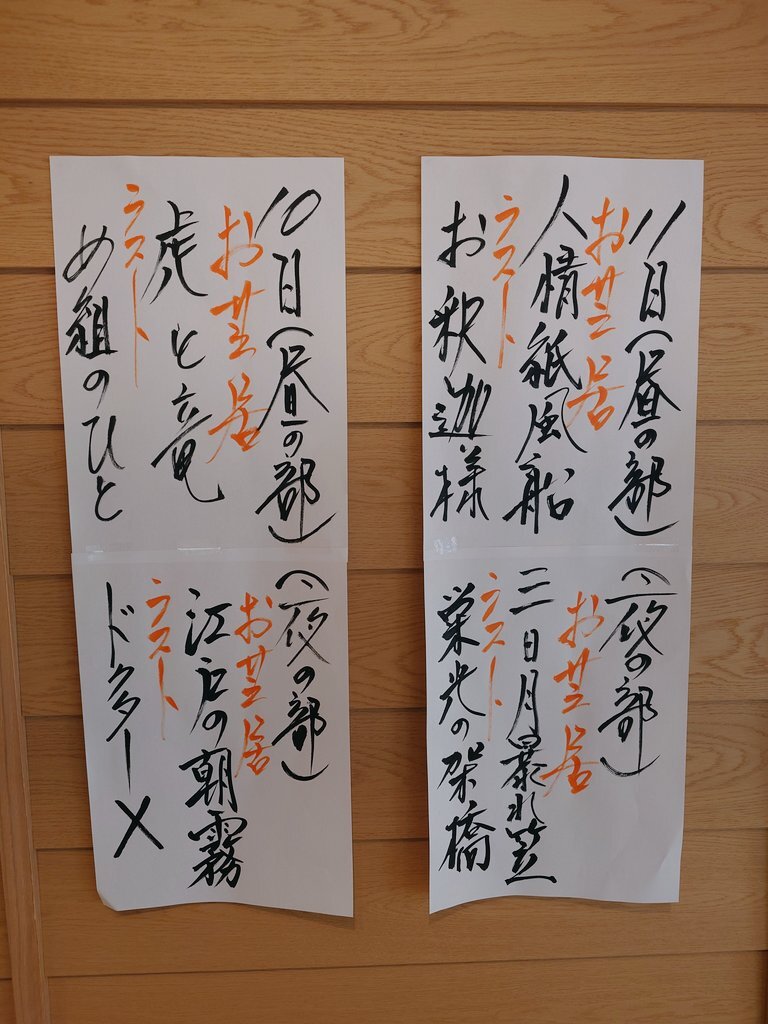 11日(昼の部)
お芝居
人情紙風船
ラスト
お釈迦様
(夜の部)
お芝居
三日月暴れ笠
ラスト
栄光の架橋
10日(昼の部)
お芝居
虎と竜
ラスト
め組のひと
(夜の部)
お芝居
江戸の朝霧
ラスト
ドクターX